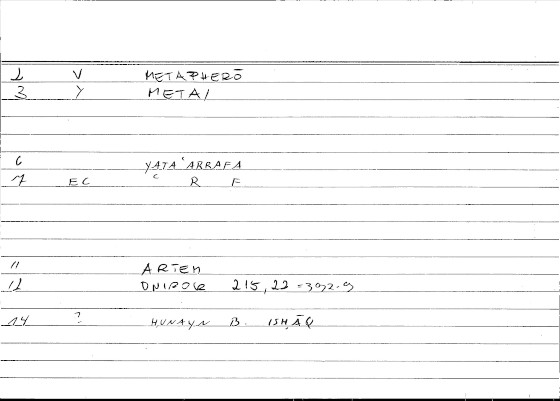 1 V METAPHERŌ
3 Y META/
6 YATAʿARRAFA
7 EC ʿ R F
11 ARTEM
12 ONIROCR 215,22 = 392.9
14 ? HUNAYN B. ISḤĀQ